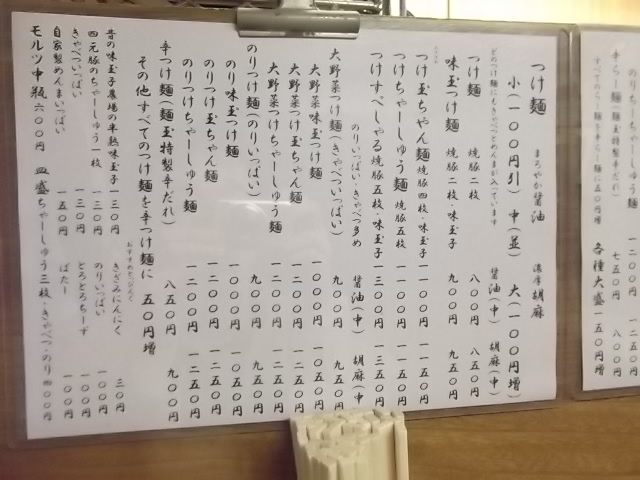 つけ麺 まろやか醤油 濃厚胡麻
小(一〇〇円引) 中(並) 大(一〇〇円増)
どのつけ麺にもきゃべつとめんまが入っています 醤油(中) 胡麻(中)
つけ麺 焼豚二枚 八〇〇円 八五〇円
味玉つけ麺 焼豚二枚・味玉子 九〇〇円 九五〇円
つけ玉ちゃん麺 焼豚四枚・味玉子 一一〇〇円 一一五〇円
つけちゃーしゅう麺 焼豚五枚 一一〇〇円 一一五〇円
つけすぺしゃる 焼豚五枚・味玉子 一三〇〇円 一三五〇円
のりいっぱい・きゃべつ多め 醤油(中) 胡麻(中)
大野菜つけ麺(きゃべついっぱい) 九〇〇円 九五〇円
大野菜味玉つけ麺 一〇〇〇円 一〇五〇円
大野菜つけ玉ちゃん麺 一二〇〇円 一二五〇円
大野菜つけちゃーしゅう麺 一二〇〇円 一二五〇円
のりつけ麺(のりいっぱい) 九〇〇円 九五〇円
のり味玉つけ麺 一〇〇〇円 一〇五〇円
のりつけ玉ちゃん麺 一二〇〇円 一二五〇円
のりつけちゃーしゅう麺 一二〇〇円 一二五〇円
辛つけ麺(麺玉特製辛だれ) 八五〇円 九〇〇円
その他すべてのつけ麺を辛つけ麺に 五〇円増
おすすめとっぴんぐ
昔の味玉子農場の半熟味玉子 一三〇円 きざみにんにく 三〇円
四元豚のちゃーしゅう一枚 一三〇円 のりいっぱい 一〇〇円
きゃべついっぱい 一三〇円 とろとろちーず 一〇〇円
自家製めんまいっぱい 一五〇円 ばたー 一〇〇円
モルツ中瓶 六〇〇円 皿盛ちゃーしゅう三枚・きゃべつ・のり 四〇〇円
一二〇〇円 一二五〇円
辛らー麺(麺玉特製辛だれ) 七五〇円 八〇〇円
すべてのらー麺を辛らー麺に 五〇円増 各種大盛 一五〇円増